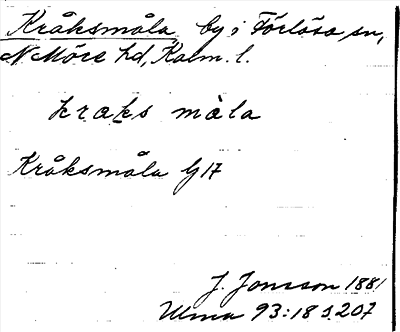 Kråksmåla, by i Förlösa sn,
N Möre hd, Kalm. l.
kraks màla
Kråksmåla G 17
J. Jonsson 1881
Ulma 93:18 s. 207